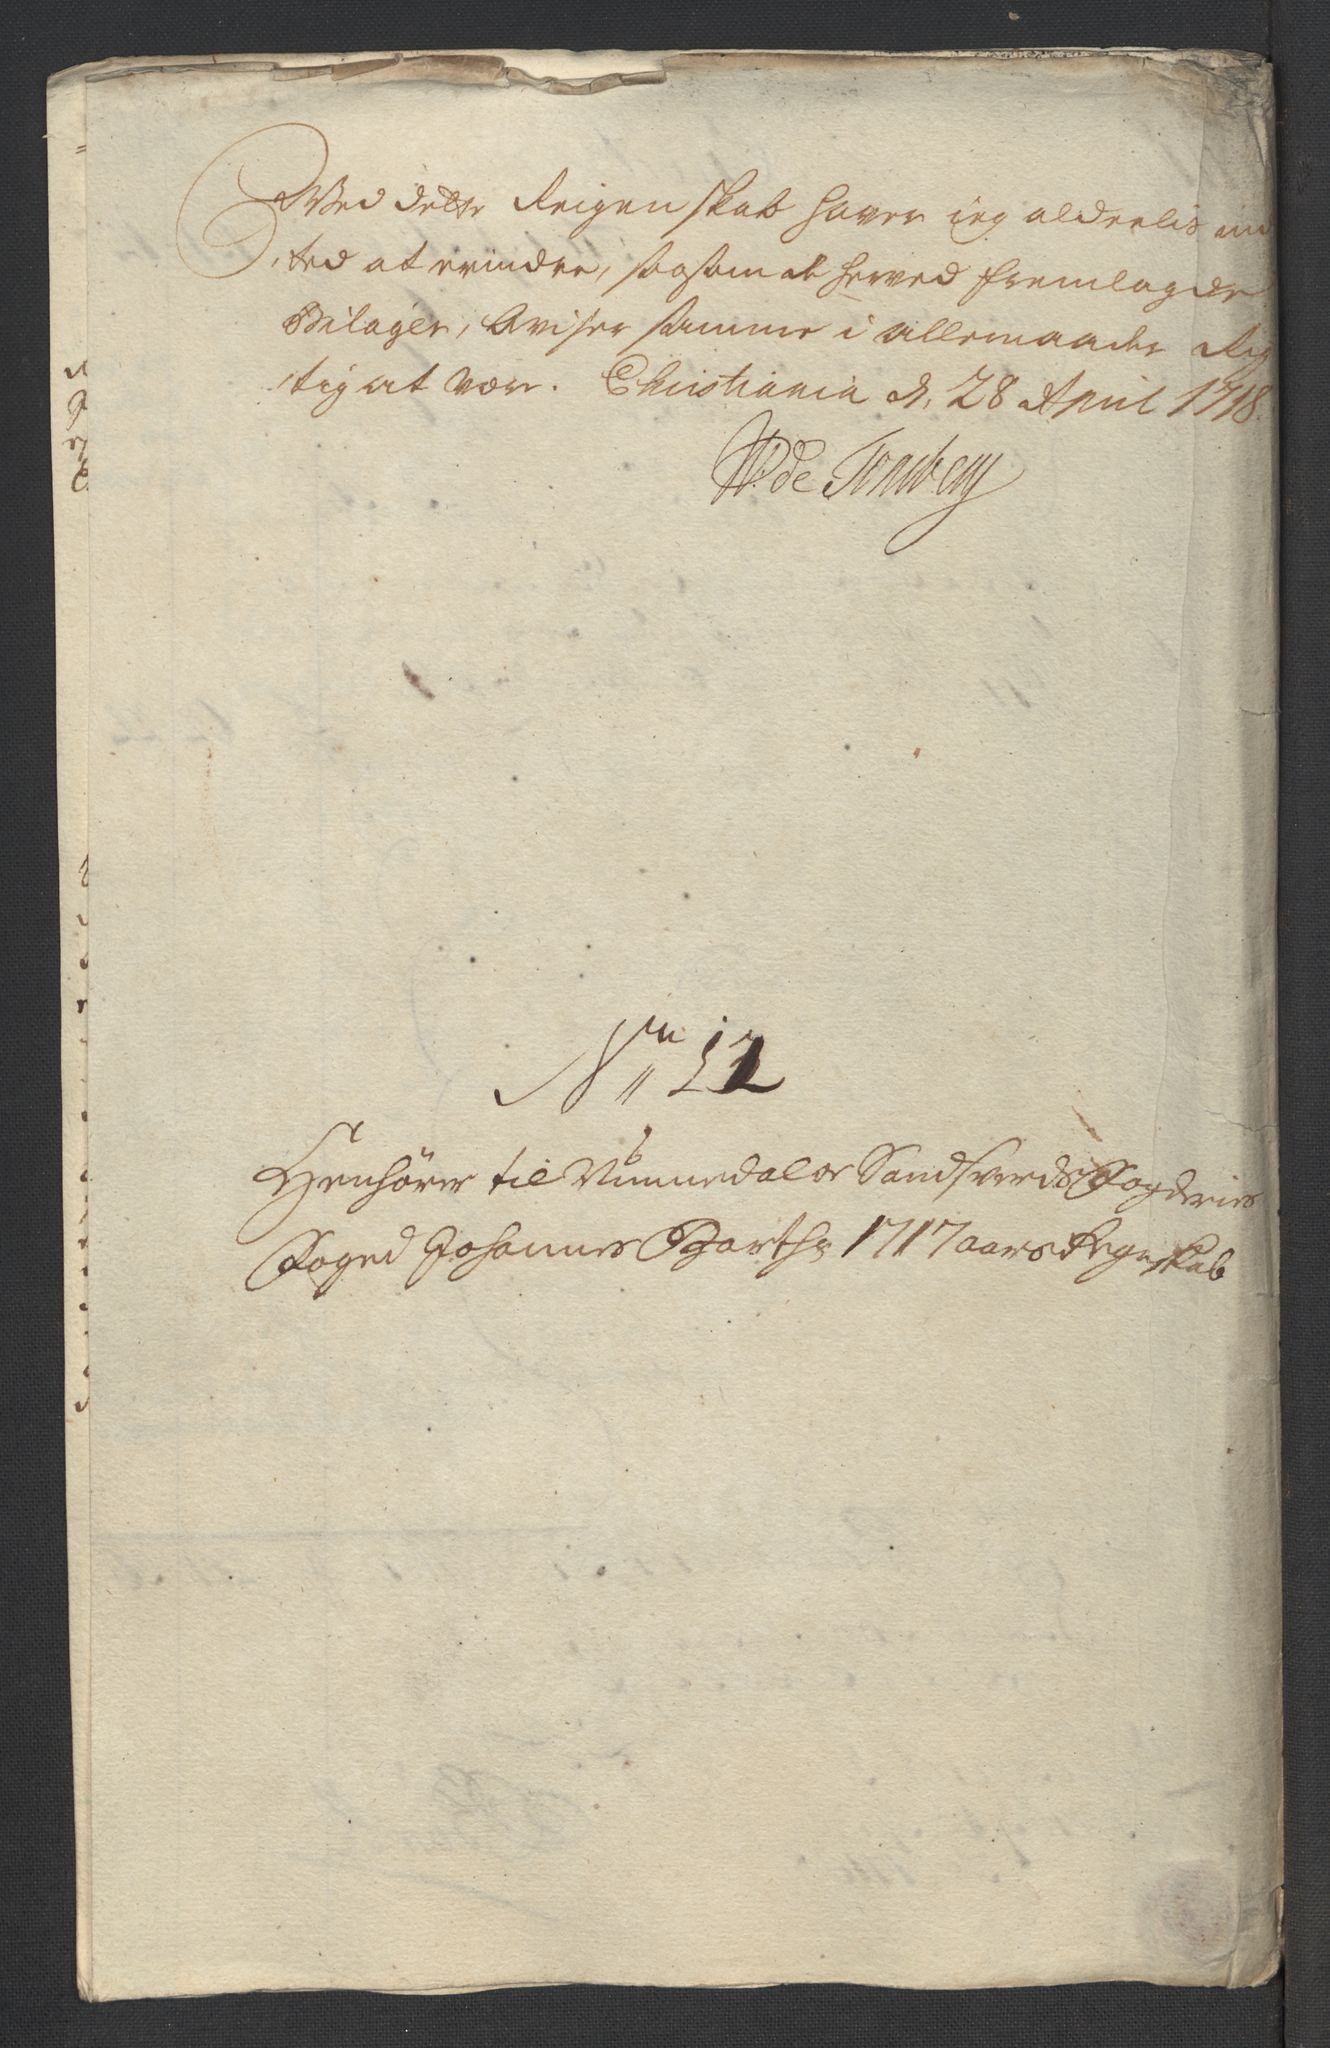 Wed dette Reigenskab hawer ieg alderlis in¬
ted at erindre, saasom de herved fremlagde
Bilager, Aviser samme i allemaader Rig¬
tig at være. Christiania d. 28 April 1718.
de Tonsberg
No 12
Henhörer til Nummedal og Sandsverds Fogderies
Foged Johannes Barths 1717 aars Regenskab